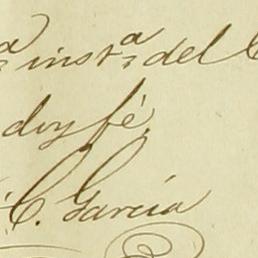 ª instª del
doy fé,
C. García